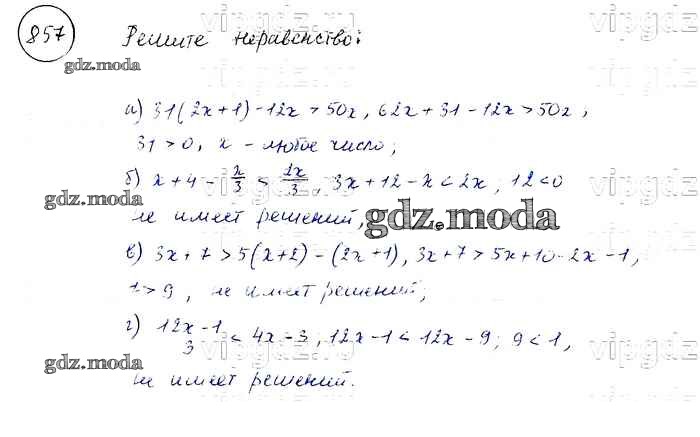 857 Решите неравенство:
а) 31(2x+1)-12x>50x, 62x+31-12x>50x;
31>0, x - любое число;
б) x+4-x/3<2x/3, 3x+12-x<2x; 12<0
не имеет решений;
в) 3x+7>5(x+2)-(2x+1), 3x+7>5x+10-2x-1,
7>9, не имеет решений;
г) 12x-1/3<4x-3, 12x-1<12x-9; 9<1,
не имеет решений.
gdz.moda
gdz.moda
gdz.moda
gdz.moda
gdz.moda
vipgdz.ru
vipgdz
vipgdz.ru
vipgdz
vipgdz.ru
vipgdz
vipgdz.ru
vipgdz
vipgdz.ru
vipgdz